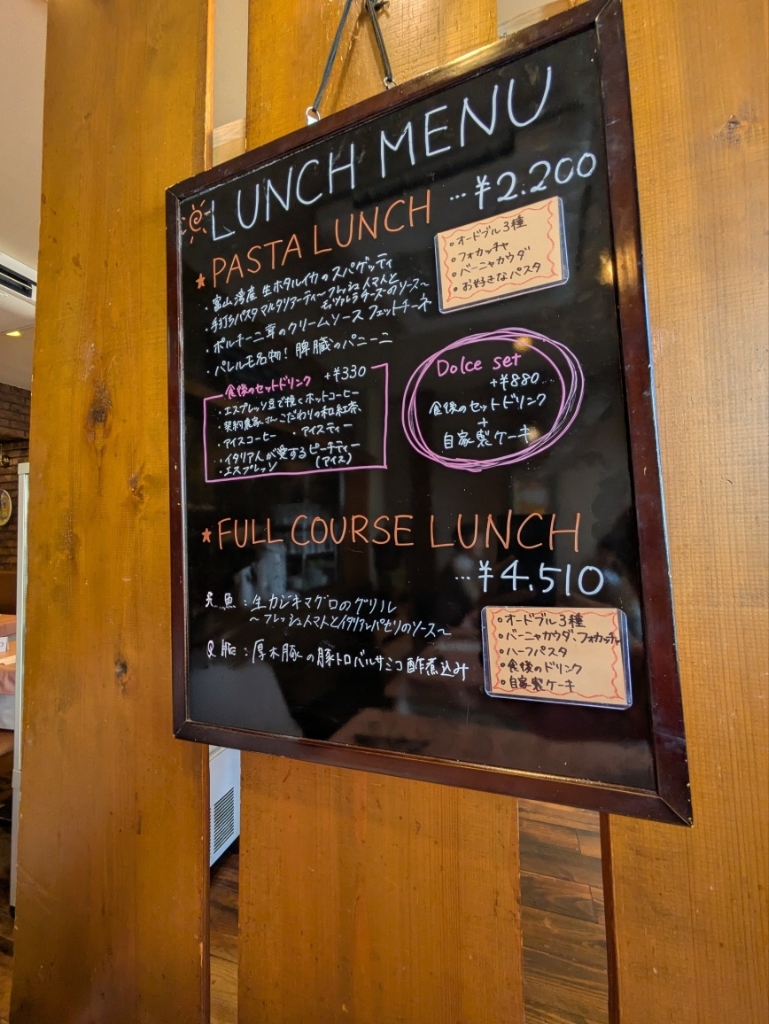 LUNCH MENU
★PASTA LUNCH …¥2.200
・富山湾産 生ホタルイカのスパゲッティ
・手打ちパスタ マルタリアーティ～フレッシュトマトと
モッツァレラチーズのソース～
・ポルチーニ茸のクリームソース フェットチーネ
・パレルモ名物! 脾臓のパニーニ
・オードブル3種
・フォカッチャ
・バーニャカウダ
・お好きなパスタ
食後のセットドリンク +¥330
・エスプレッソ豆で挽くホットコーヒー
・契約農家さんこだわりの和紅茶
・アイスコーヒー ・アイスティー
・イタリア人が愛するピーチティー
・エスプレッソ (アイス)
Dolce set
+¥880
食後のセットドリンク
+
自家製ケーキ
★FULL COURSE LUNCH
…¥4.510
魚:生カジキマグロのグリル
～フレッシュトマトとイタリアンパセリのソース～
:厚木豚の豚トロバルサミコ酢煮込み
・オードブル3種
・バーニャカウダ、フォカッチャ
・ハーフパスタ
・食後のドリンク
・自家製ケーキ